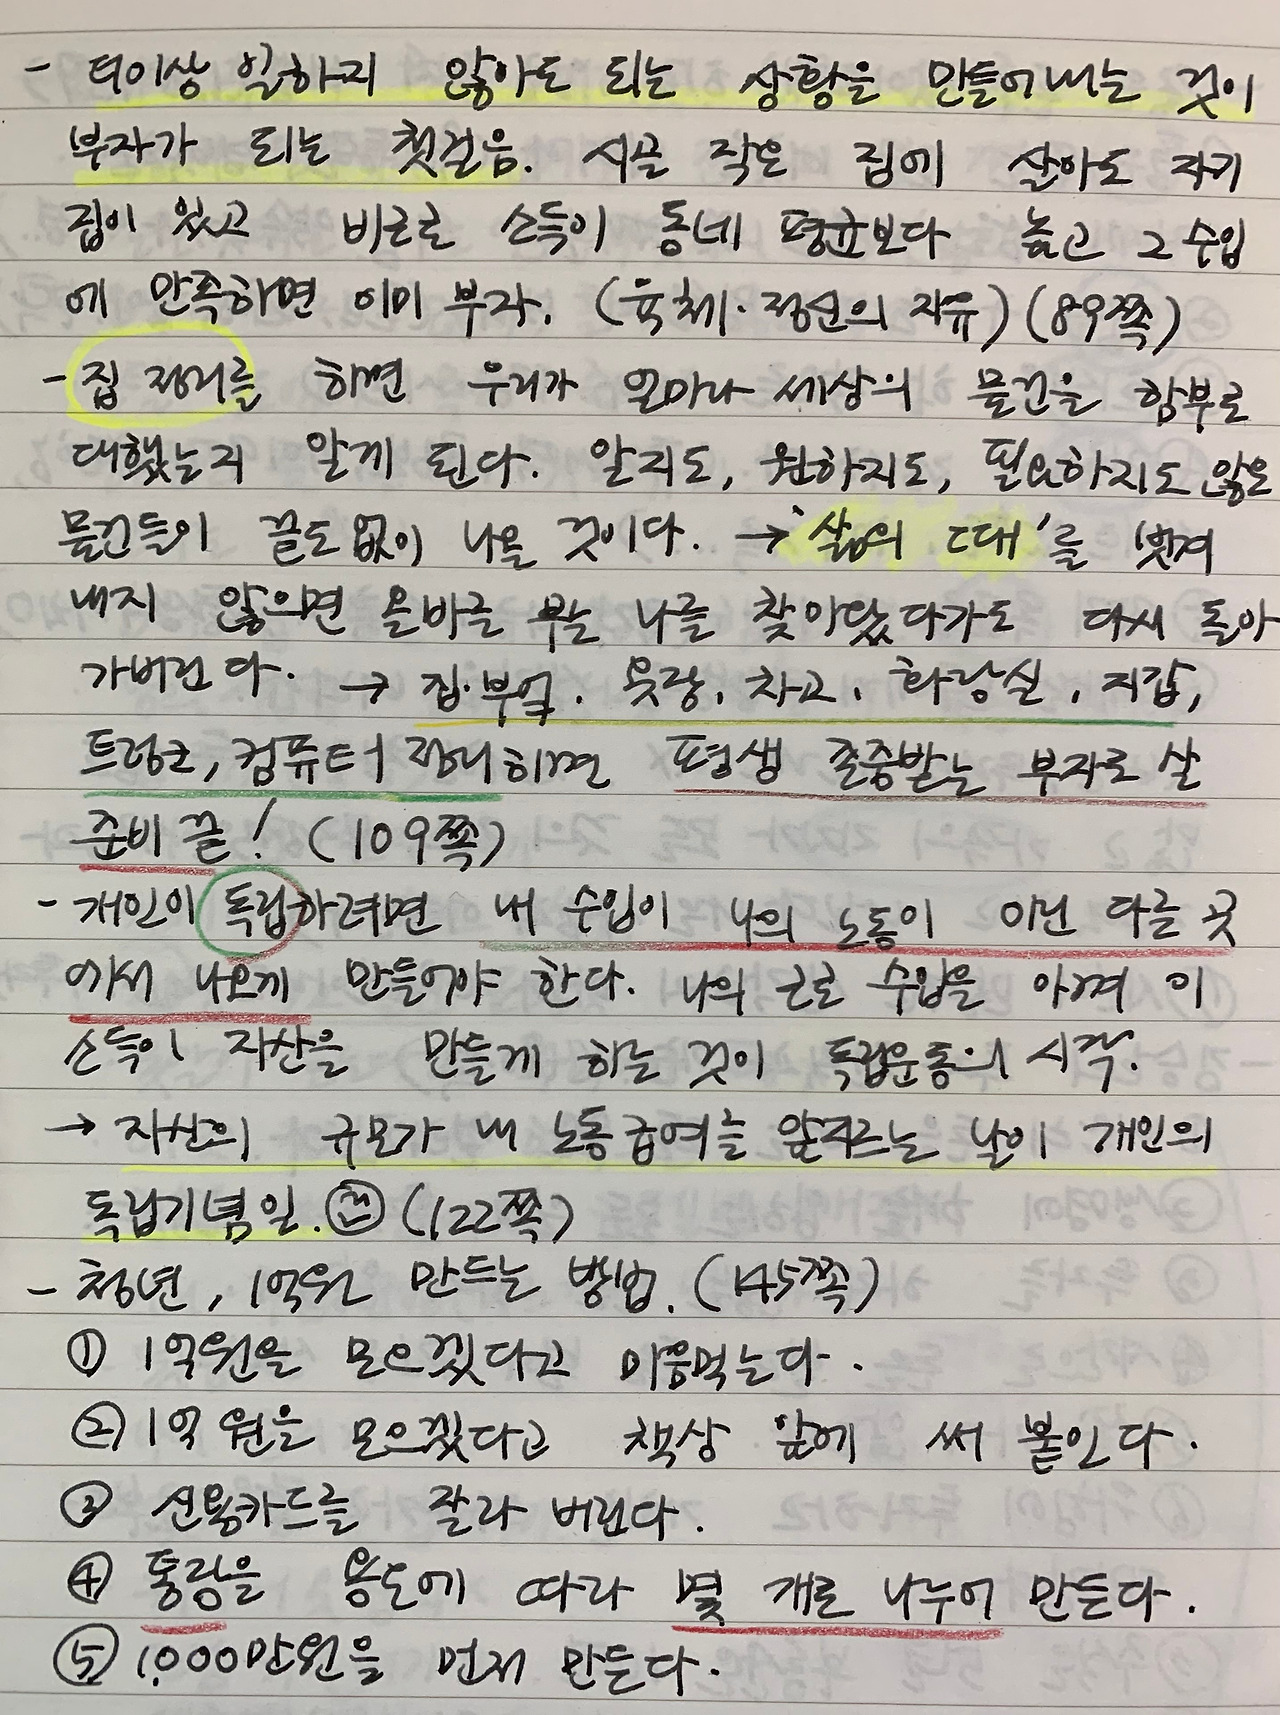 - 더이상 일하지 않아도 되는 상황을 만들어내는 것이
부자가 되는 첫걸음. 시골 작은 집에 살아도 자기
집이 있고 비근로 소득이 동네 평균보다 높고 그 수입
에 만족하면 이미 부자. (육체·정신의 자유) (89쪽)
- 집 정리를 하면 우리가 얼마나 세상의 물건을 함부로
대했는지 알게 된다. 알지도, 원하지도, 필요하지도 않은
물건들이 끝도 없이 나올 것이다. → '삶의 때'를 벗겨
내지 않으면 올바른 부는 나를 찾아왔다가도 다시 돌아
가버린다. → 집·부엌. 옷장, 차고, 화장실, 지갑,
트렁크, 컴퓨터 정리하면 평생 존중받는 부자로 살
준비 끝! (109쪽)
- 개인이 독립하려면 내 수입이 나의 노동이 아닌 다른 곳
에서 나오게 만들어야 한다. 나의 근로 수입을 아껴 이
소득이 자산을 만들게 하는 것이 독립운동의 시작.
→ 자산의 규모가 내 노동급여를 앞지르는 날이 개인의
독립기념일. (122쪽)
- 청년, 1억원 만드는 방법. (145쪽)
① 1억원을 모으겠다고 마음먹는다.
② 1억원을 모으겠다고 책상 앞에 써 붙인다.
③ 신용카드를 잘라 버린다.
④ 통장을 용도에 따라 몇 개로 나누어 만든다.
⑤ 1,000만원을 먼저 만든다.